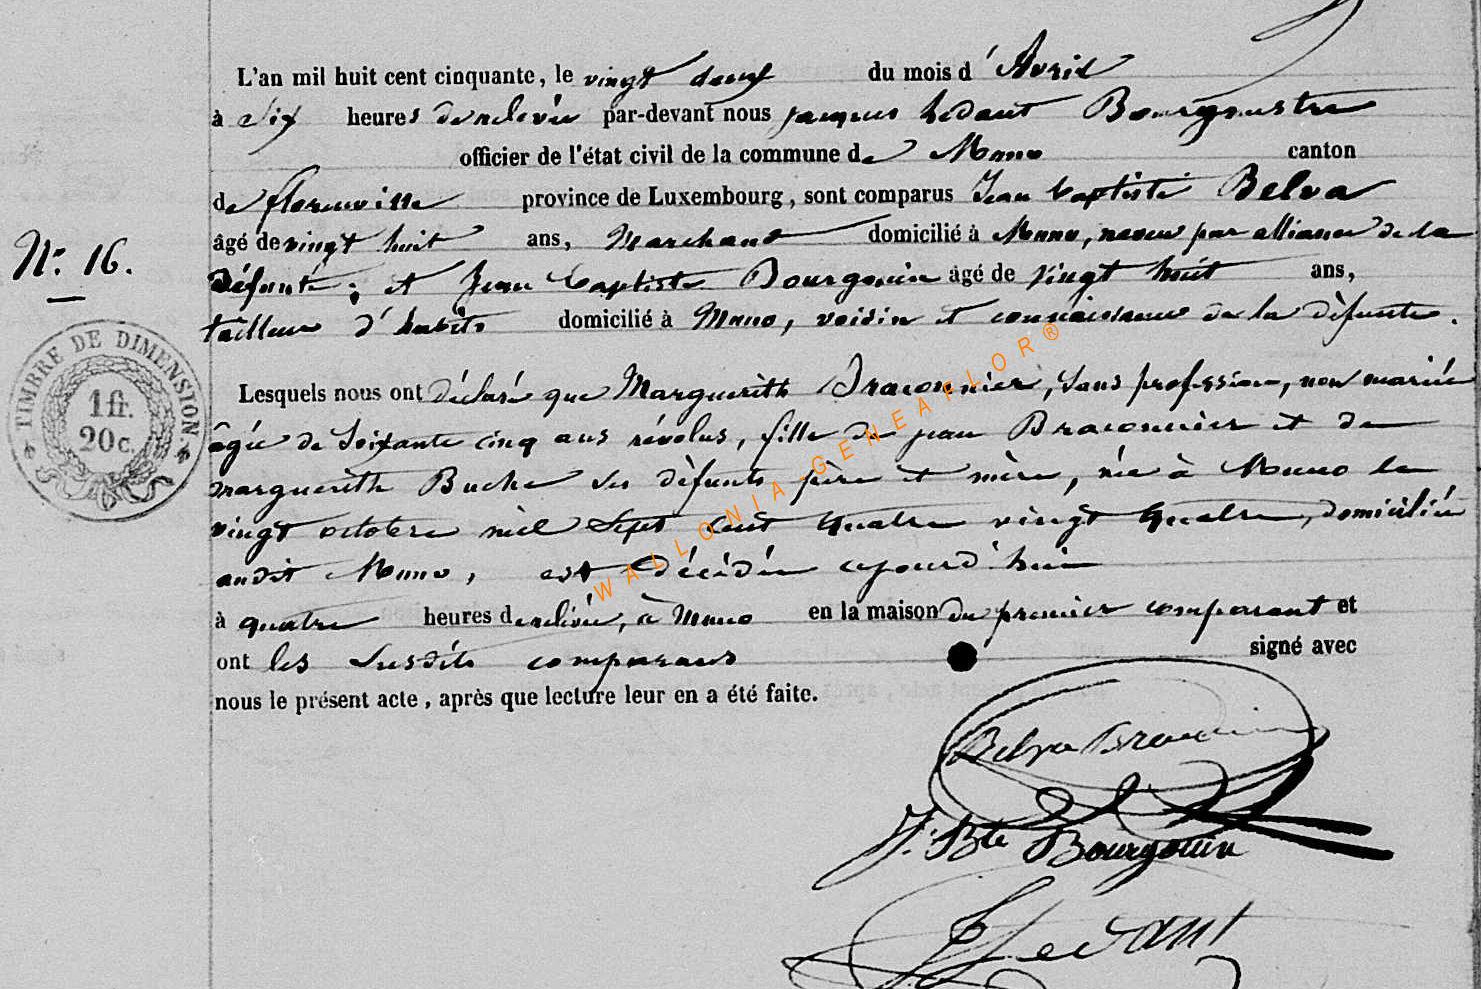 L'an mil huit cent cinquante, le vingt deux du mois d'Avril
à Six heures de relevée par-devant nous jacques hedant Bourgmestre
officier de l'état civil de la commune de Muno canton
de florenville province de Luxembourg, sont comparus Jean baptiste Belva
âgé de vingt huit ans, Marchand domicilié à Muno, neveu par alliance de la
défunte; et Jean baptiste Bourgouin âgé de vingt huit ans,
N.º 16.
tailleur d'habits domicilié à Muno, voisin et connaissance de la défunte.
TIMBRE DE DIMENSION
1 fr.
20 c.
Lesquels nous ont déclaré que Marguerith Braconnier, sans profession, non mariée
âgée de Soixante cinq ans révolus, fille de jean Braconnier et de
marguerith Buche ses défunts père et mère, née à Muno le
vingt octobre mil Sept cent quatre vingt quatre, domiciliée
audit Muno, est décédée ajourd'hui
à quatre heures de relivée, à Muno en la maison du premier comparant et
ont les susdits comparans signé avec
nous le présent acte, après que lecture leur en a été faite.
Belva Braconnier
J. Bte Bourgouin
J hedant
WALLONIA GENEAFLOR®